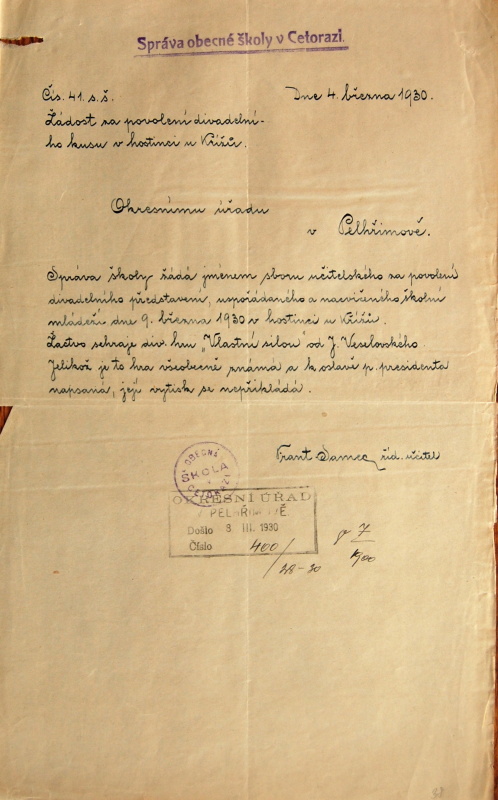 Správa obecné školy v Cetorazi.
Čís. 41 s.š.
Dne 4. března 1930.
Žádost za povolení divadelní-
ho kusu v hostinci u Křížů.
Okresnímu úřadu
v Pelhřimově.
Správa školy žádá jménem sboru učitelského za povolení
divadelního představení, uspořádaného a nacvičeného školní
mládeží dne 9. března 1930 v hostinci u Křížů.
Žactvo sehraje div. hru „Vlastní silou" od J. Veselovského.
Jelikož je to hra všeobecně známá a k oslavě p. presidenta
napsaná, její výtisk se nepřikládá.
Frant. Samec, říd. učitel
OBECNÁ
ŠKOLA
CETORAZI
OKRESNÍ ÚŘAD
V PELHŘIMOVĚ.
Došlo 8 III. 1930
Číslo 400/
28-30